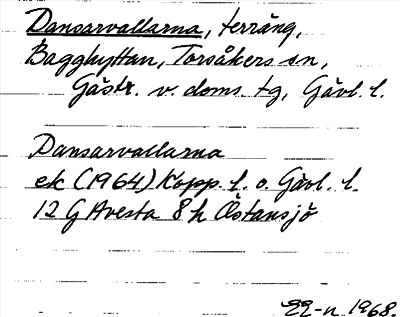 Dansarvallarna, terräng,
Bagghyttan, Torsåkers sn,
Gästr. v. doms. tg, Gävl. l.
Dansarvallarna
ek (1964) Kopp. l. o. Gävl. l.
12 G Avesta 8 h Östansjö
1968.